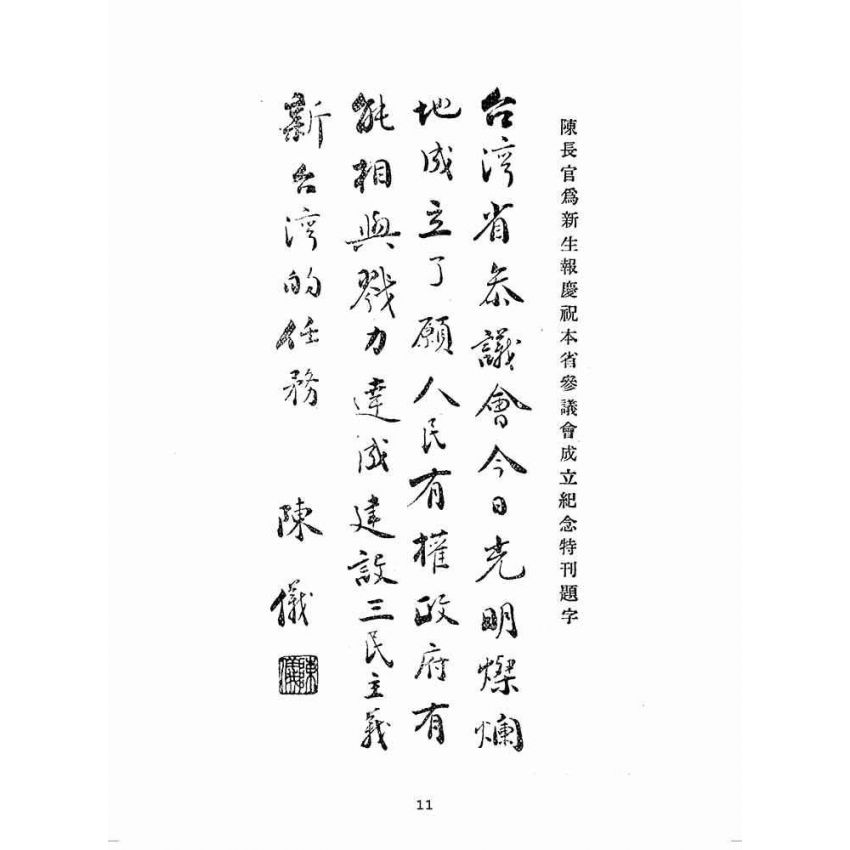 陳長官爲新生報慶祝本省參議會成立紀念特刊題字
台湾省叅議會今日光明燦爛
地成立了願人民有權政府有
能相與戮力達成建設三民主義
新台湾的任務 陳儀
陳儀
11